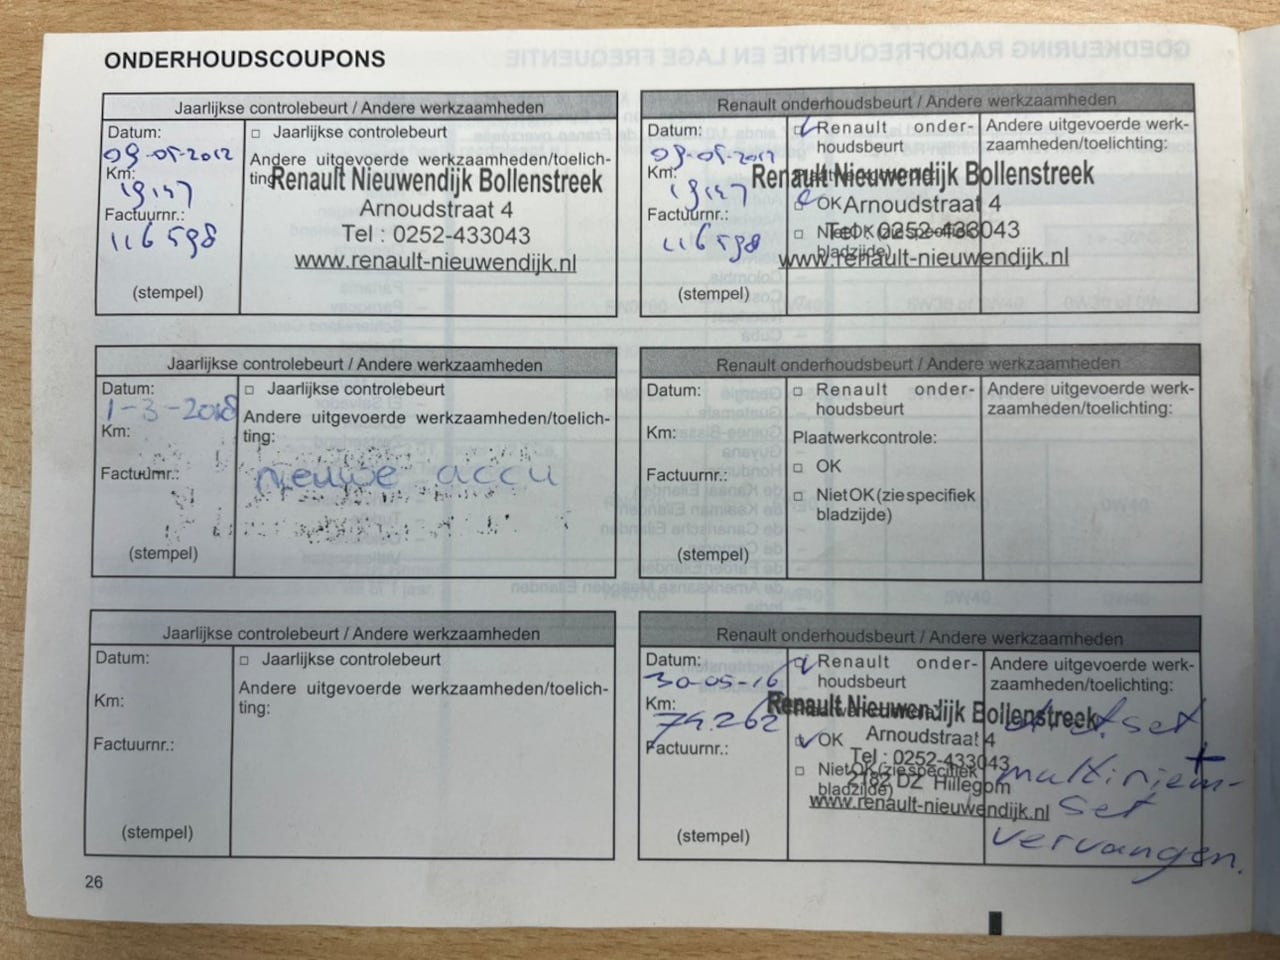 ONDERHOUDSCOUPONS
Jaarlijkse controlebeurt / Andere werkzaamheden
Datum:
09-05-2012
Km:
19147
Factuurnr.:
116598
(stempel)
□ Jaarlijkse controlebeurt
Andere uitgevoerde werkzaamheden/toelich-
ting:
Renault Nieuwendijk Bollenstreek
Arnoudstraat 4
Tel : 0252-433043
www.renault-nieuwendijk.nl
Renault onderhoudsbeurt / Andere werkzaamheden
Datum:
09-05-2012
Km:
19147
Factuurnr.:
116598
(stempel)
Renault onder-
houdsbeurt
OK
Niet OK (zie specifiek
bladzijde)
Andere uitgevoerde werk-
zaamheden/toelichting:
Renault Nieuwendijk Bollenstreek
Arnoudstraat 4
Tel : 0252-433043
www.renault-nieuwendijk.nl
Jaarlijkse controlebeurt / Andere werkzaamheden
Datum:
1-3-2018
Km:
Factuurnr.:
(stempel)
□ Jaarlijkse controlebeurt
Andere uitgevoerde werkzaamheden/toelich-
ting:
nieuwe accu
Renault onderhoudsbeurt / Andere werkzaamheden
Datum:
Km:
Factuurnr.:
(stempel)
□ Renault onder-
houdsbeurt
Plaatwerkcontrole:
□ OK
□ Niet OK (zie specifiek
bladzijde)
Andere uitgevoerde werk-
zaamheden/toelichting:
Jaarlijkse controlebeurt / Andere werkzaamheden
Datum:
Km:
Factuurnr.:
(stempel)
□ Jaarlijkse controlebeurt
Andere uitgevoerde werkzaamheden/toelich-
ting:
Renault onderhoudsbeurt / Andere werkzaamheden
Datum:
30-05-16
Km:
74.262
Factuurnr.:
(stempel)
Renault onder-
houdsbeurt
OK
□ Niet OK (zie specifiek
bladzijde)
Renault Nieuwendijk Bollenstreek
Arnoudstraat 4
Tel : 0252-433043
2182 DZ Hillegom
www.renault-nieuwendijk.nl
Andere uitgevoerde werk-
zaamheden/toelichting:
set
+
multiriem-
set
vervangen.
26